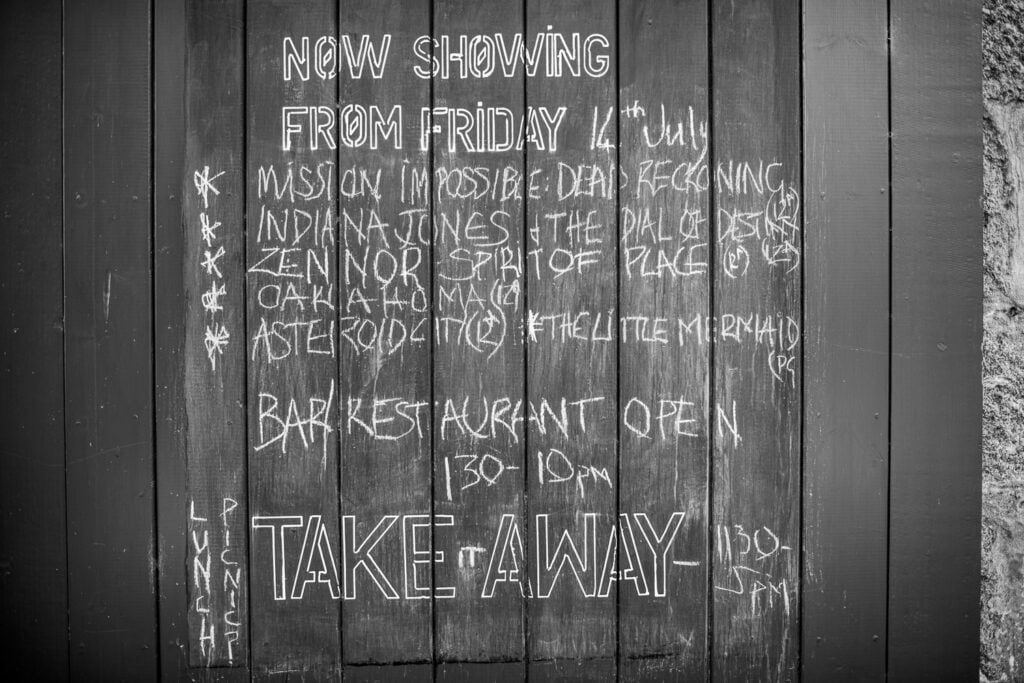 NOW SHOWING
FROM FRIDAY 14th July
* MISSION IMPOSSIBLE: DEAD RECKONING
* INDIANA JONES & THE DIAL OF DESTINY
* ZENNOR SPIRIT OF PLACE
* OAKLAHOMA
* ASTEROID CITY * THE LITTLE MERMAID
(PG
BAR/RESTAURANT OPEN
130-10pm
TAKE IT AWAY- 1130-
5PM
LUNCH
PICNIC?